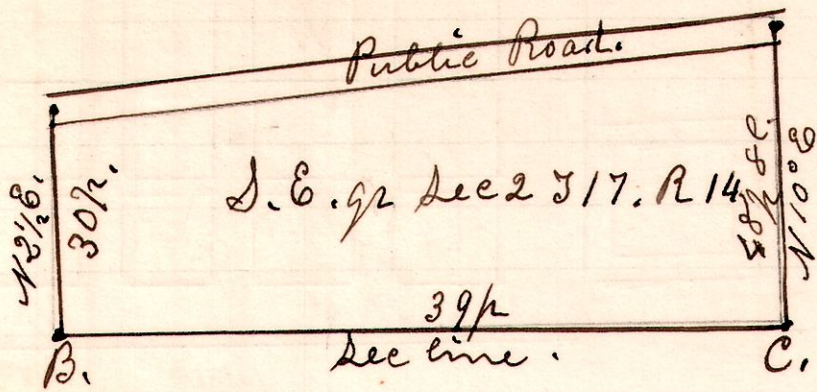 Public Road.
N 2½ E.
30 p.
S.E. qr Sec 2 T 17. R 14
N 10° E
39 p
Sec line.
B.
C.